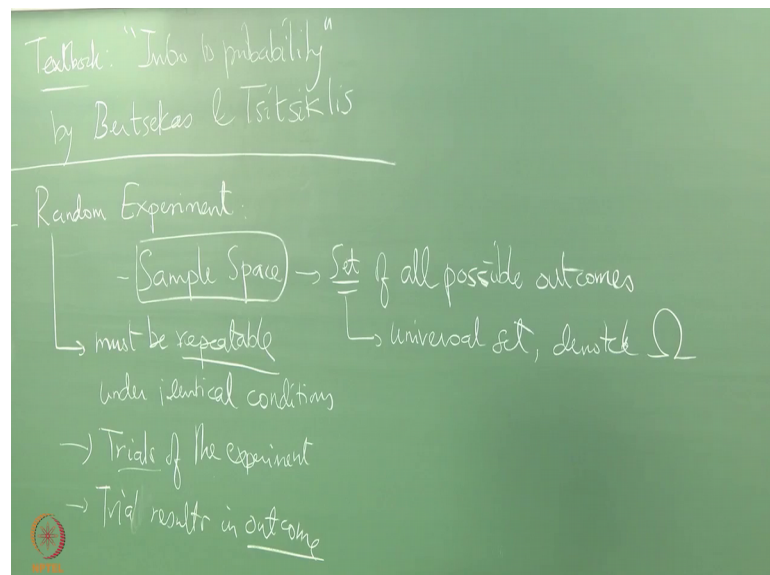 Textbook: "Intro to probability"
by Bertsekas & Tsitsiklis
- Random Experiment:
- Sample Space → Set of all possible outcomes
↳ must be repeatable ↳ universal set, denoted Ω
under identical conditions
→ Trials of the experiment
→ Trial results in outcome
NPTEL